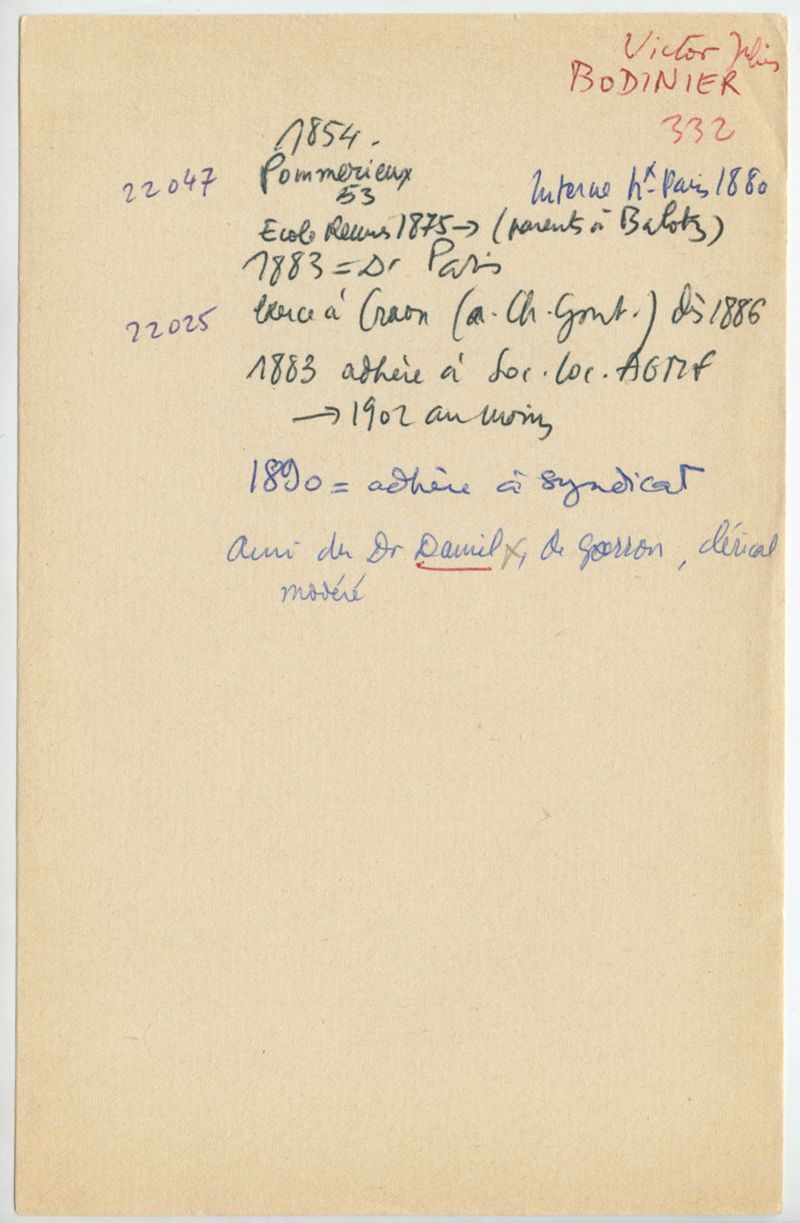 Victor Jules
BODINIER
332
1854.
22047 Pommerieux
53
Interne Hx Paris 1880
Ecole Rennes 1875 → (parents à Balots)
1883 = Dr Paris
22025 exerce à Craon (a. Ch. Gont.) dès 1886
1883 adhère à Soc. loc. AGMF
→ 1902 au moins
1890 = adhère à syndicat
Ami du Dr Daniel x, de Gorron, clérical
modéré